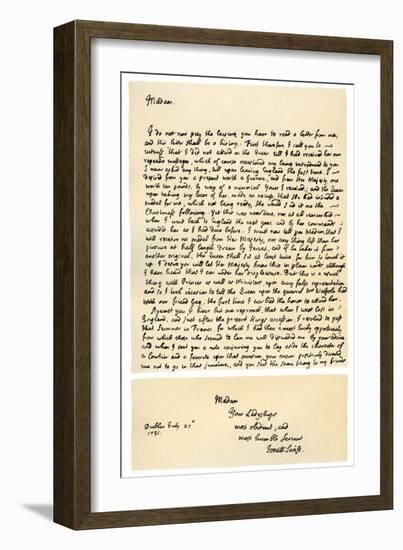 Madam.
I do not now pity the leisure you have to read a letter from me,
and this letter shall be a history. First therefore, I call you to
witness that I did not attend on the Queen till I had received her own
repeated messages, which of course occasioned my being introduced to you
I never asked any thing, till upon leaving England the first time, I
desired from you a present worth a guinea, and from Her Majesty one
worth ten pounds, by way of a memorial. Yours I received; and the Queen
upon taking my leave of her made an excuse, that she had intended a
medal for me, which not being ready, she would send it me the
Christmas following. Yet this was never done, nor at all remembered
when I went back to England the next year, and by her commands
attended her as I had done before. I must now tell you Madam, that I
will receive no medal from Her Majesty, nor any thing less than her
picture at half length, drawn by Jervas; and if he takes it from
another original, the Queen shall sit at least twice for him to touch it
up. I desire you will let Her Majesty know this in plain words, although
I have heard that I am under her displeasure. But this is a usual
thing with Princes as well as Ministers, upon every false representation
and so I took occasion to tell the Queen upon the quarrel Mr Walpole had
with our friend Gay, the first time I ever had the honor to attend her.
Against you I have but one reproach, that when I was last in
England, and just after the present King's accession, I resolved to pass
that Summer in France, for which I had then a most lucky opportunity
from which those who seemed to love me well dissuaded me by your advice
and when I sent you a note conjuring you to lay aside the character of
a courtier and a favorite upon that occasion, your answer positively directed
me not to go in that juncture, and you said the same thing to my friends
Madam
Your Ladyships
most obedient, and
most humble Servant
Jonath: Swift.
Dublin July 27th
1731.